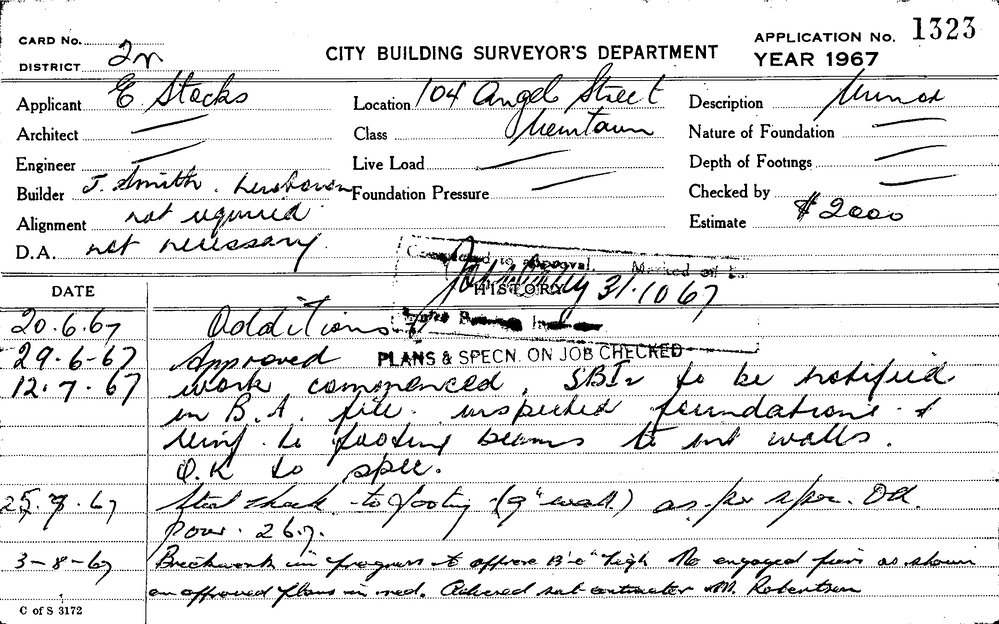 CARD No.
DISTRICT 2N
CITY BUILDING SURVEYOR'S DEPARTMENT
APPLICATION No. 1323
YEAR 1967
Applicant E Stocks
Location 104 Angel Street
Newtown
Description Minor
Architect —
Class
Nature of Foundation —
Engineer —
Live Load —
Depth of Footings —
Builder J. Smith.
Foundation Pressure —
Checked by —
Alignment not required
Estimate $2000
D.A. not necessary.
Completed to approval. Marked off
31.10.67
DATE
HISTORY
20.6.67 Additions
29.6-67 Approved
PLANS & SPECN. ON JOB CHECKED
12.7.67 work commenced, SBI to be notified
in B.A. file. inspected foundations &
reinf. to footing beams to ext walls.
O.K to spec.
25.7.67 Steel check to footing (9" wall) as per spec. Od
Pour. 26.7.
3-8-67 Brickwork in progress to approx 13'0" high No engaged piers as shown
on approved plans in red. Advised sub contractor Mr. Robertson
C of S 3172